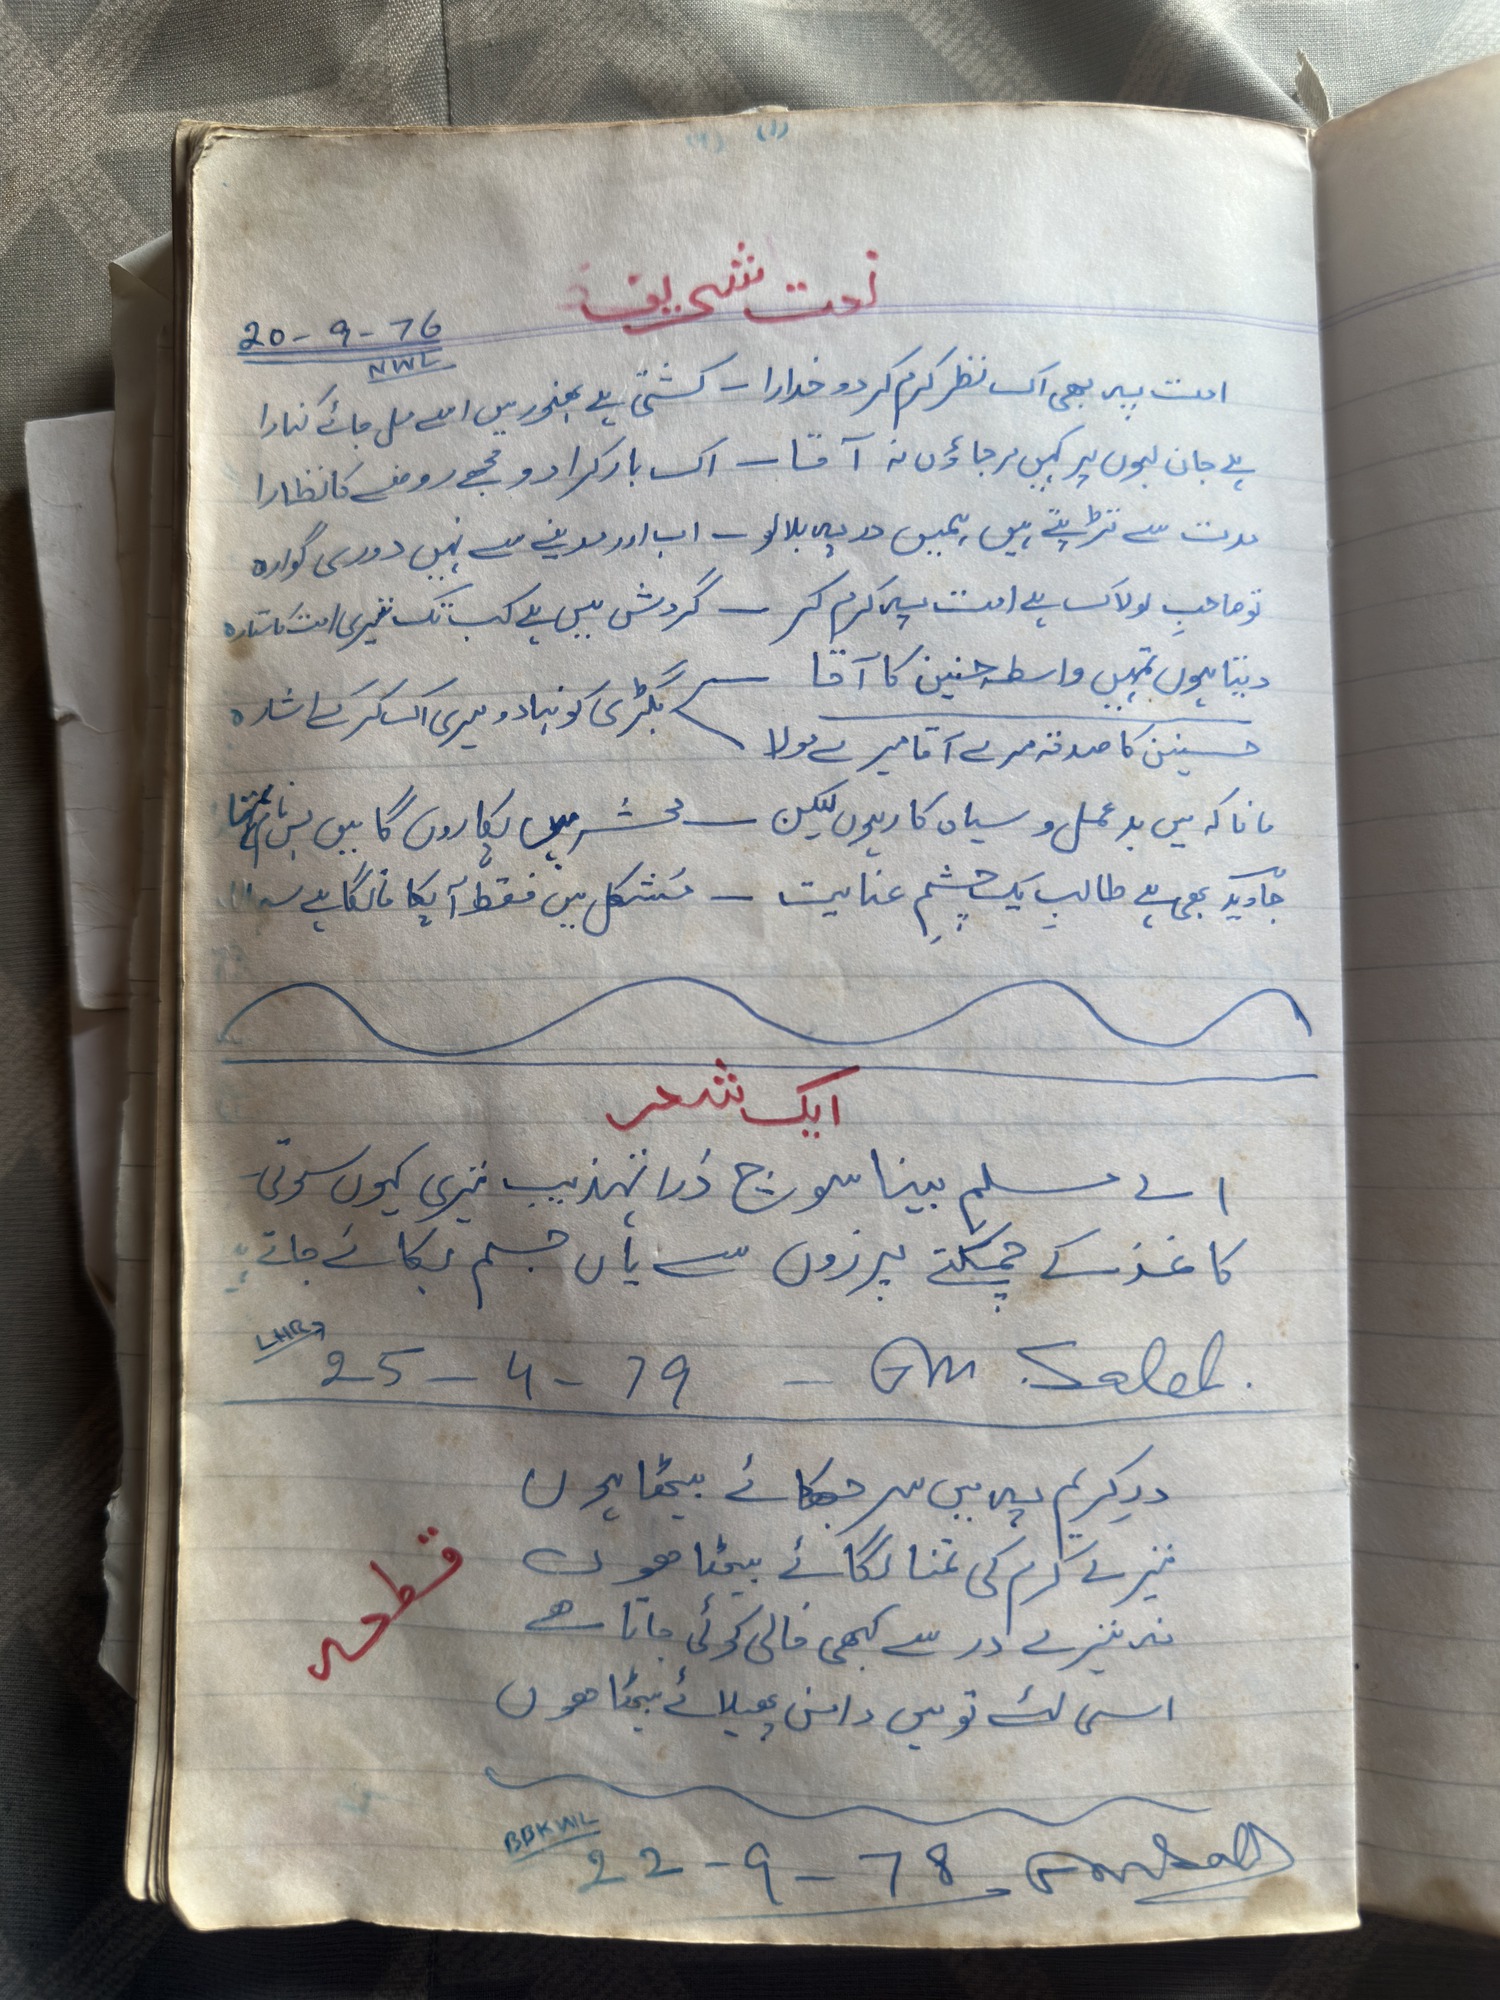 نعت شریف
20-9-76
NWL
امت پہ بھی اک نظر کرم کر دو خدارا – کشتی ہے بھنور میں اسے مل جائے کنارا
ہے جان لبوں پر کہیں مر جاؤں نہ آقا – اک بار کرا دو مجھے روضے کا نظارا
مدت سے تڑپتے ہیں ہمیں در پہ بلا لو – اب اور مدینے سے نہیں دوری گوارہ
تو صاحبِ لولاک ہے امت پہ کرم کر – گردش میں ہے کب تک تیری امت کا ستارہ
دیتا ہوں تمہیں واسطہ حسنین کا آقا –
حسنین کا صدقہ مرے آقا میرے مولا
بگڑی کو بنا دو میری اک کر کے اشارہ
مانا کہ میں بد عمل و سیاہ کار ہوں لیکن – محشر میں پکاروں گا میں بس نام تمہارا
جاوید بھی ہے طالبِ یک چشمِ عنایت – مشکل میں فقط آپکا مانگا ہے سہارا
ایک شعر
اے مسلم بینا سوچ ذرا تہذیب تیری کیوں سوتی
کاغذ کے چمکتے پرزوں سے یاں جسم بکائے جاتے
LHR
25-4-79 – GM
درِ کریم پہ میں سر جھکائے بیٹھا ہوں
تیرے کرم کی تمنا لگائے بیٹھا ھوں
قطعہ
نہ تیرے در سے کبھی خالی کوئی جاتا ھے
اسی لئے تو میں دامن پھیلائے بیٹھا ھوں
BBKWL
22-9-78